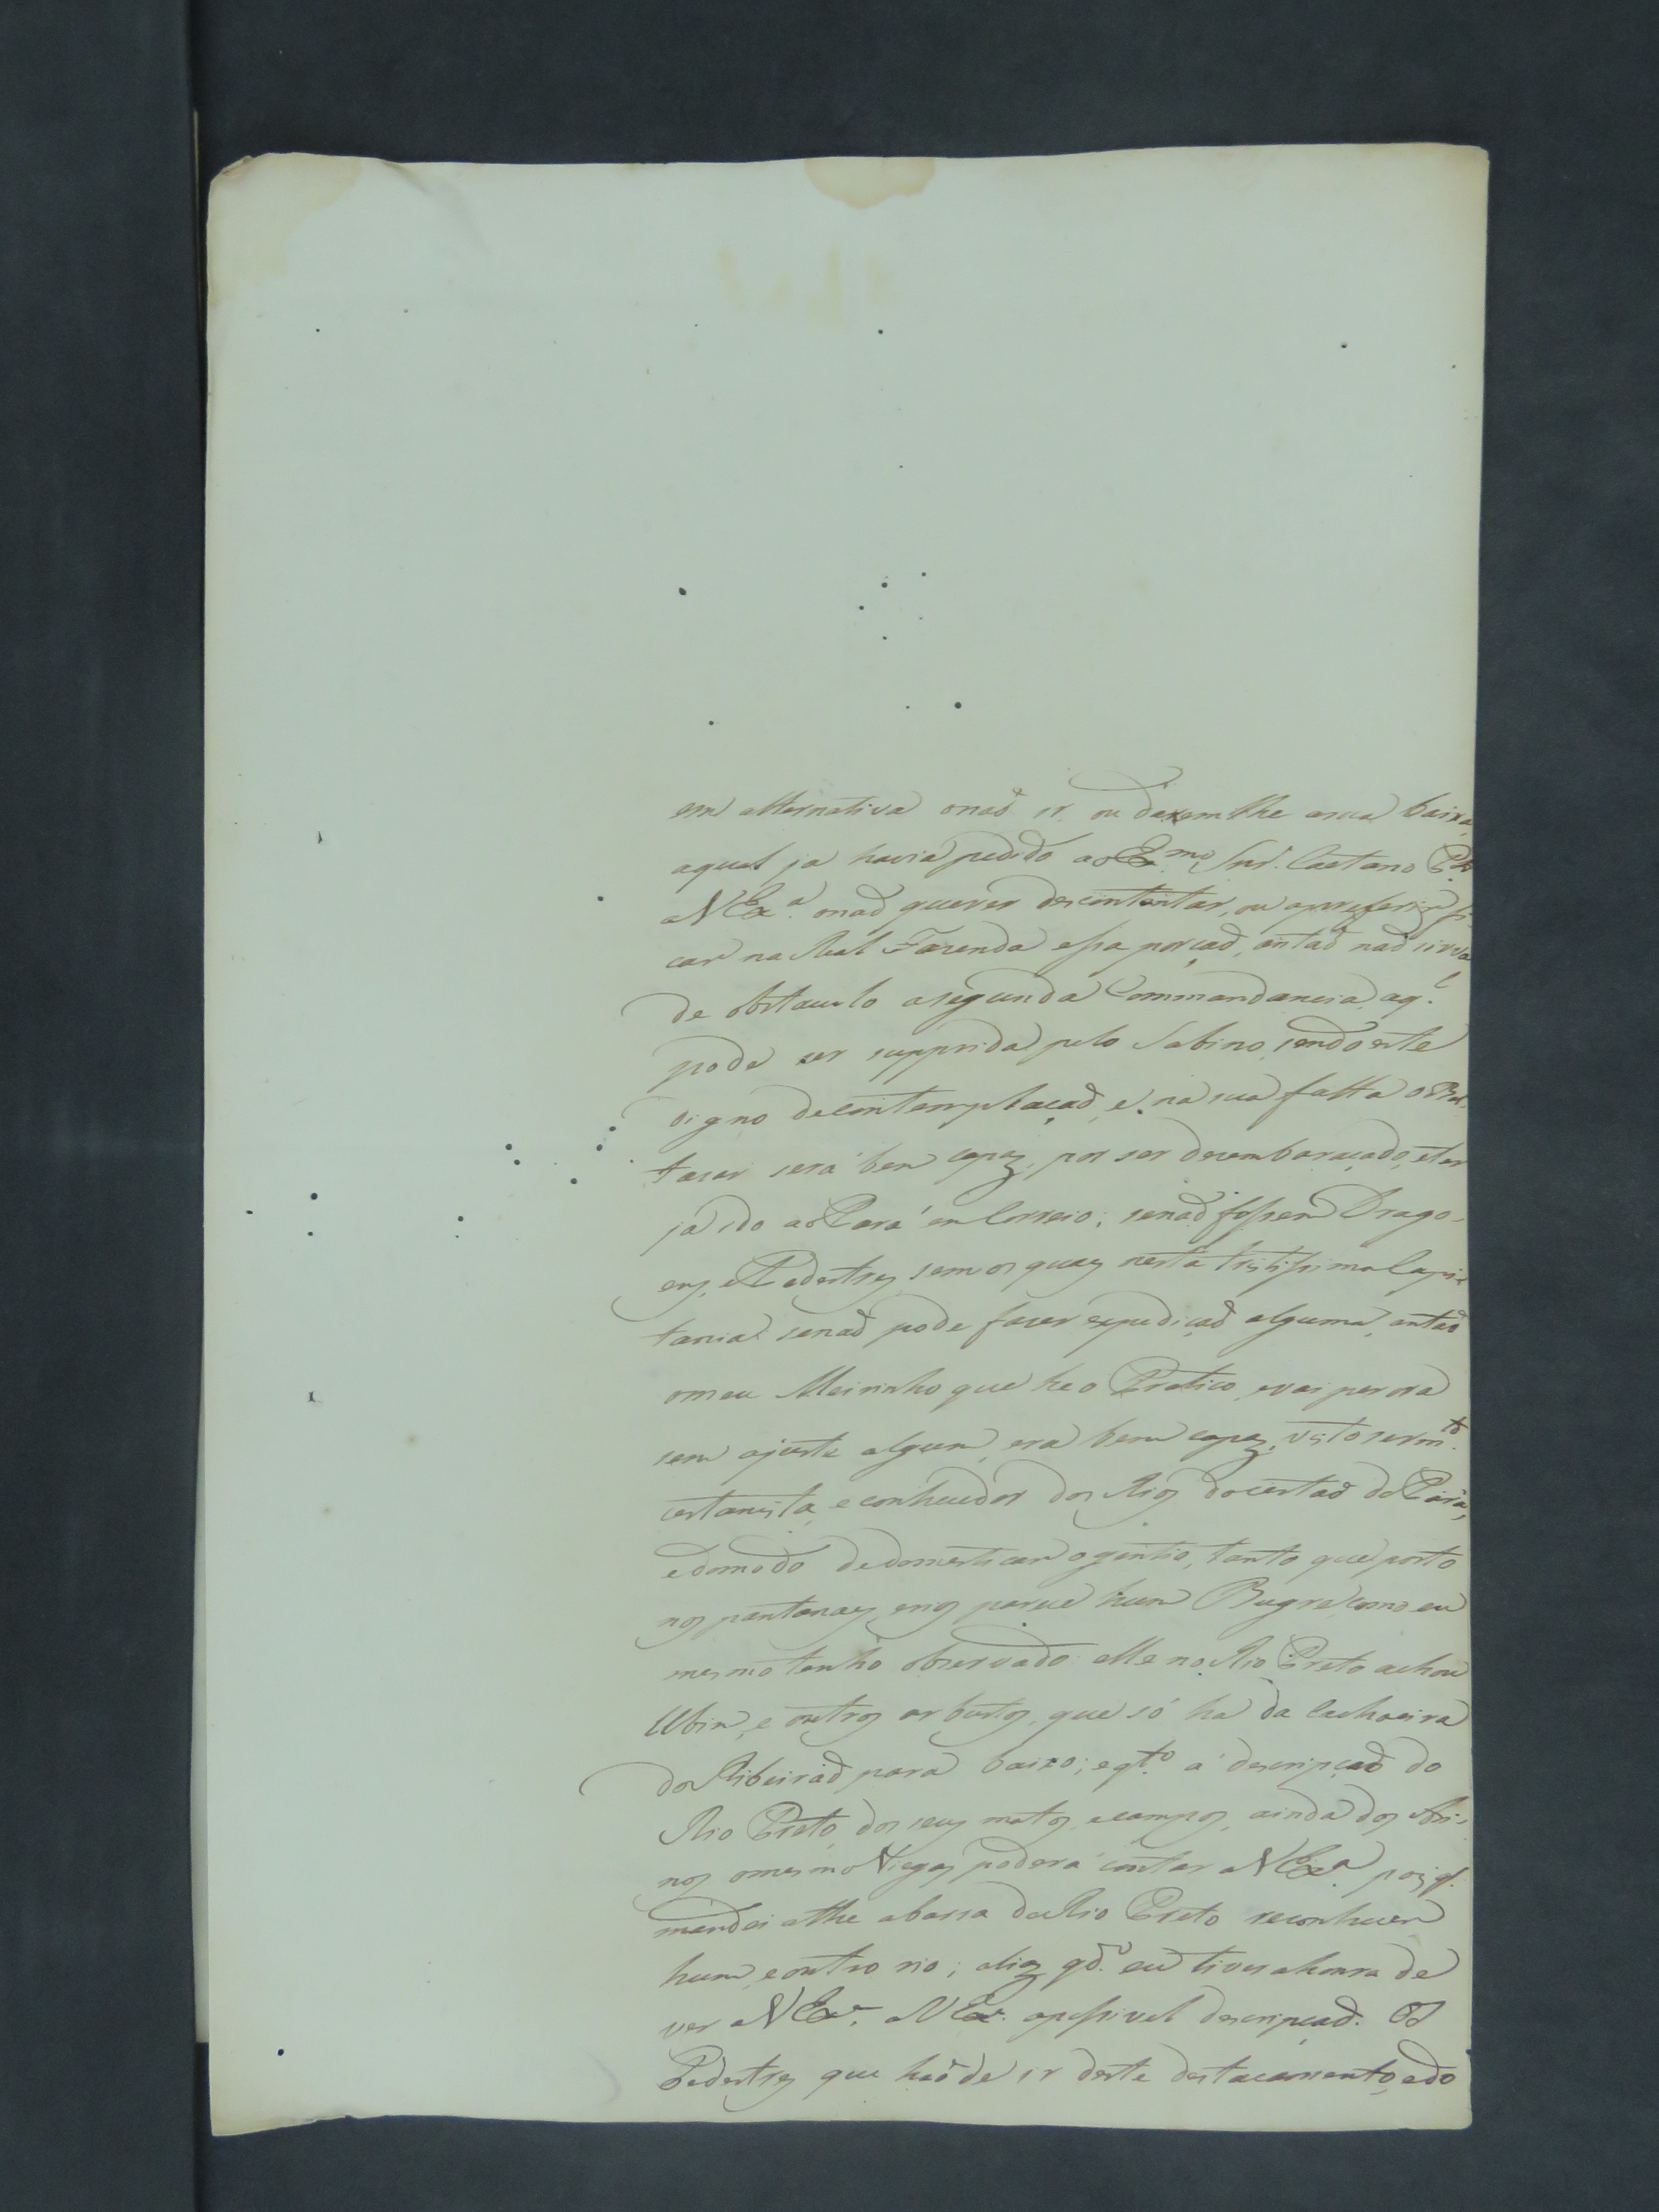 em alternativa onaõ ir, ou daremlhe asua baixa,
aqual ja havia pedido ao Ex.mo Snr. Caetano P.to
aVEx.a onaõ querer descontentar, ou apreferir fi-
car na Real Fazenda essa porçaõ, entaõ naõ sirva
de obstaculo asegunda Commandancia, aq.l
pode ser supprida pelo Sabino, sendo este
digno decontemplaçaõ, e na sua falta o Bal-
tasar será bem capaz, por ser desembaraçado, eter
já ido ao Pará em Correio; senaõ fossem Drago-
ens, e Pedestres, sem os quaes nesta tristissima Capi-
tania senaõ pode faser expediçaõ alguma, entaõ
omeu Meirinho que he o Pratico, evai por ora
sem ajuste algum, era bem capaz, visto ser m.to
certanista, e conhecedor dos Rios docertaõ do Pará,
edomodo dedomesticar ogentio, tanto que posto
nos pantanaes, enos parece hum Bugre, como eu
mesmo tenho observado: elle no Rio Preto achou
Ubim, e outros arbustos, que só ha da Cachoeira
do Ribeiraõ para baixo; eq.to á descripçaõ do
Rio Preto, dos seus matos, ecampos, ainda dos Ari-
nos omesmo Viegas poderá contar aVEx.a pois q.
mandei athe abarra do Rio Preto reconhecer
hum, e outro rio; aliás q.do eu tiver ahonra de
ver aVEx.a aVEx.a opossivel descripçaõ. Os
Pedestres que haõde ir deste destacamento, edo